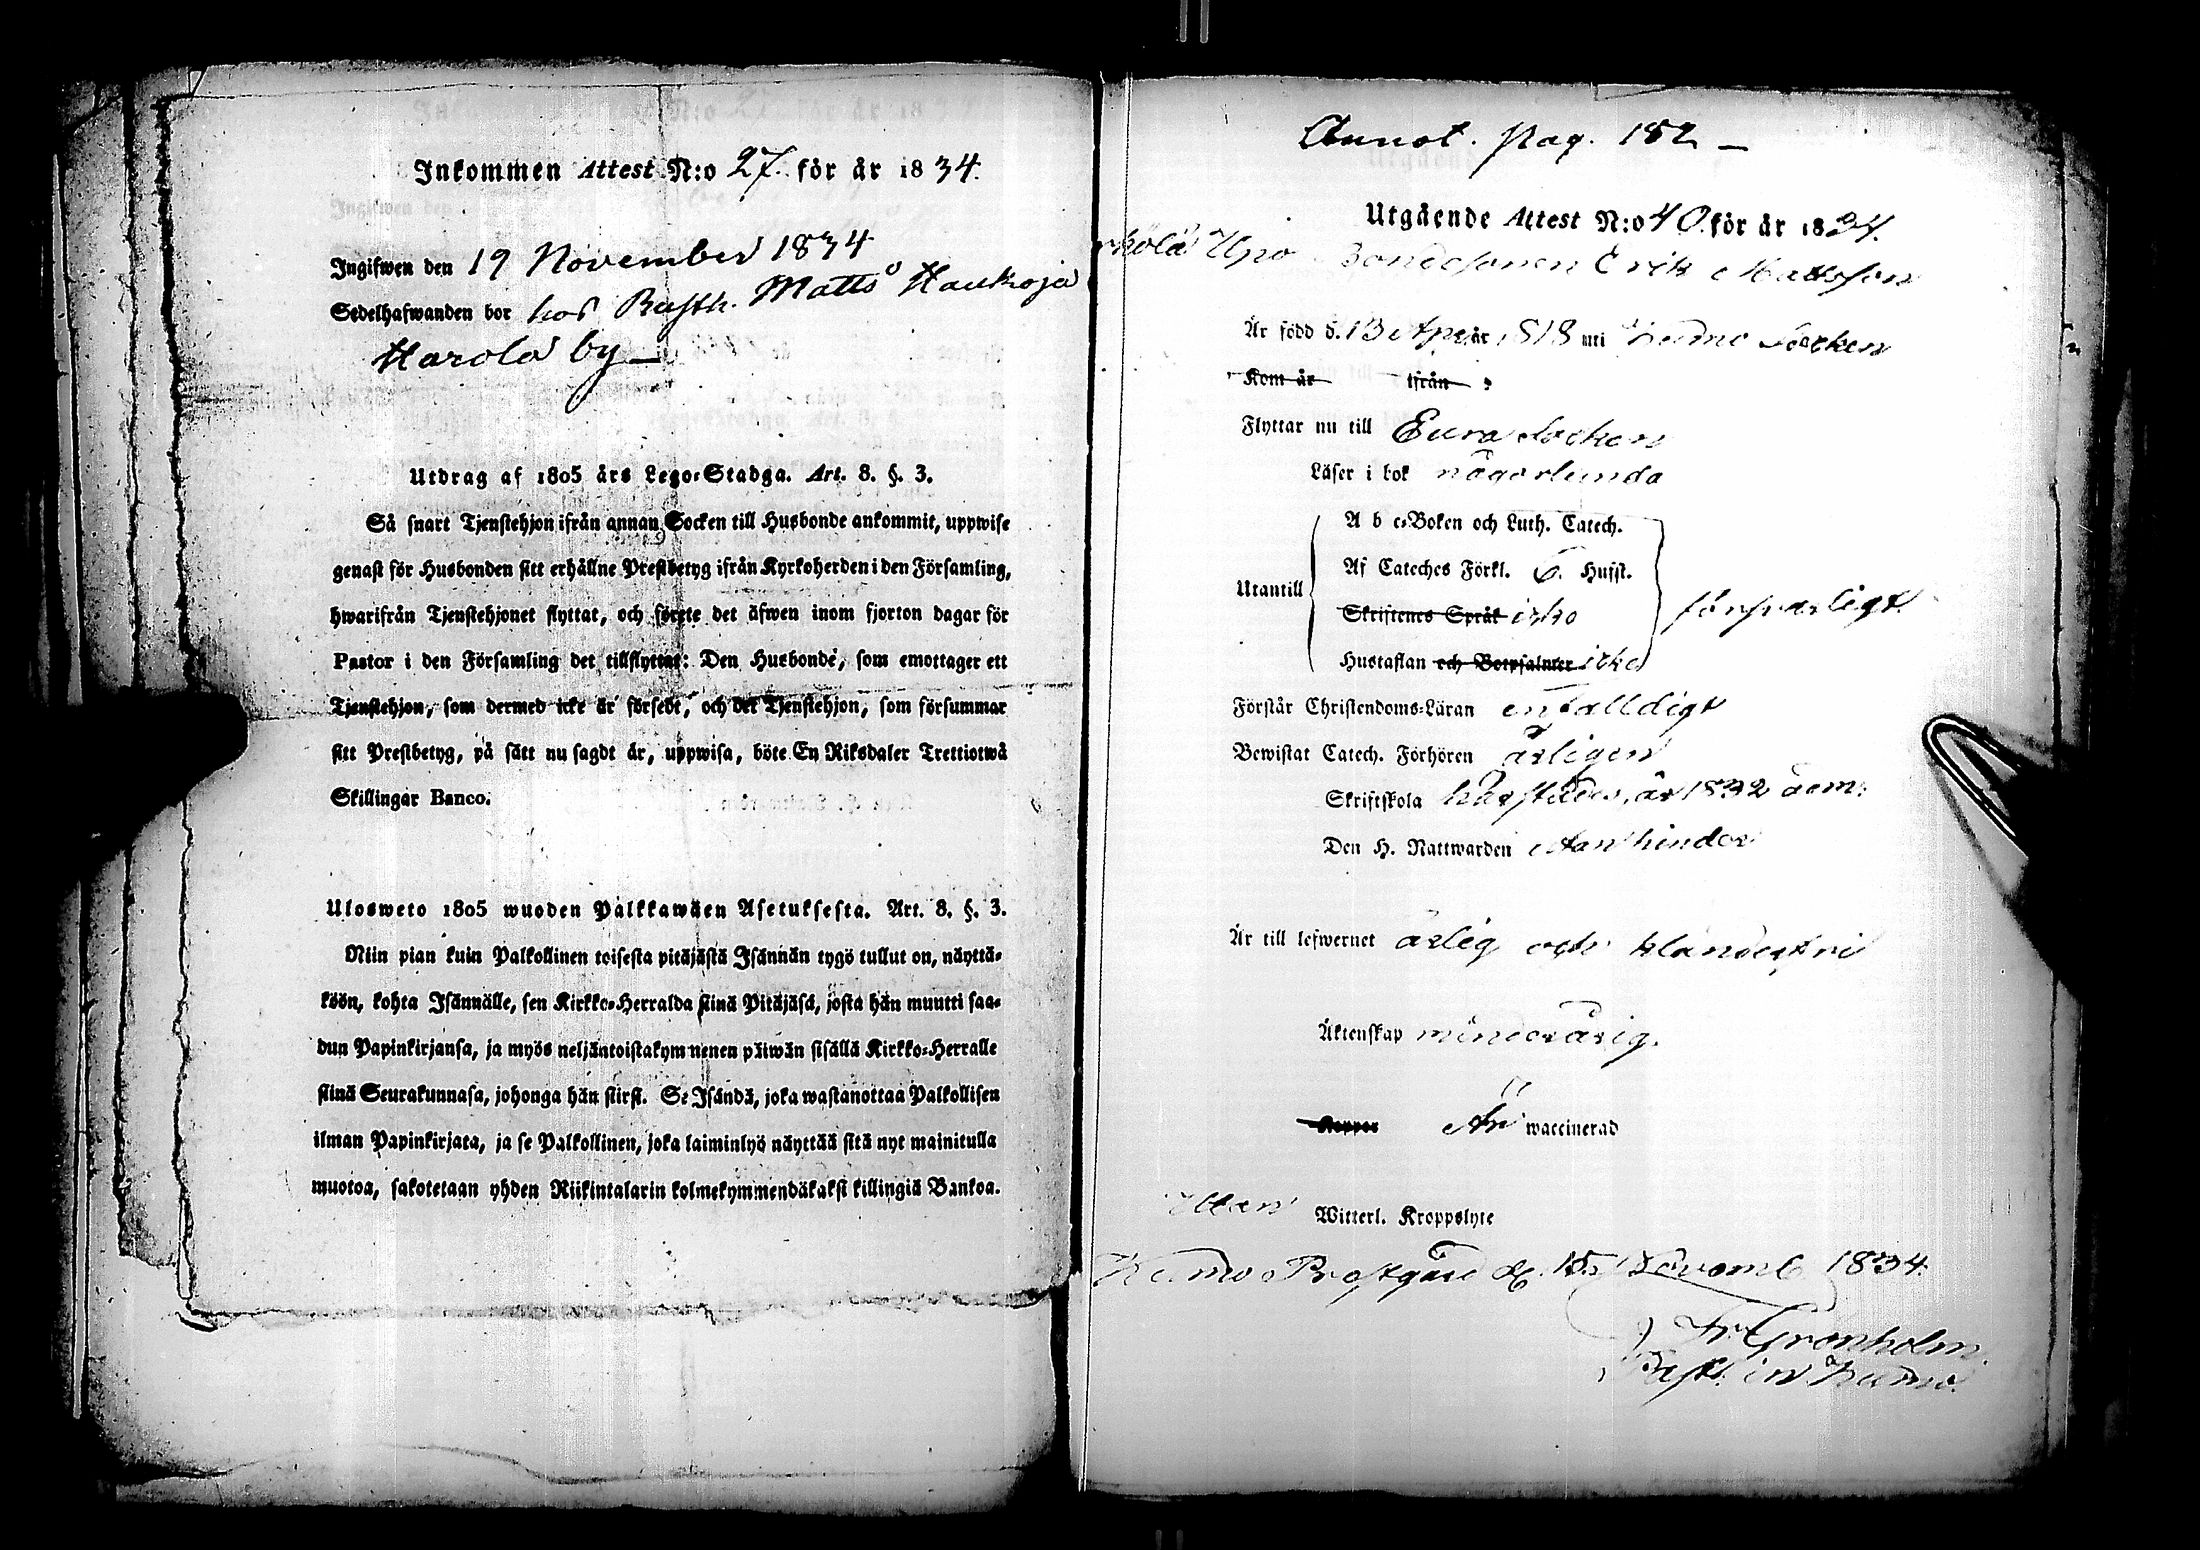 Inkommen Attest N:o 27. för år 1834.
Ingifwen den 19 November 1834
Sedelhafwanden bor hos Rusth. Matts Haukoja
Harola by
Utdrag af 1805 års Lego-Stadga. Art. 8. §. 3.
Så snart Tjenstehjon ifrån annan Socken till Husbonde ankommit, uppwise
genast för Husbonden sitt erhållne Prestbetyg ifrån Kyrkoherden i den Församling,
hwarifrån Tjenstehjonet flyttat, och förete det äfwen inom fjorton dagar för
Pastor i den Församling det tillflyttat: Den Husbonde, som emottager ett
Tjenstehjon, som dermed icke är försedt, och det Tjenstehjon, som försummar
sitt Prestbetyg, på sätt nu sagdt är, uppwisa, böte En Riksdaler Trettiotwå
Skillingar Banco.
Ulosweto 1805 wuoden Palkkawäen Asetuksesta. Art. 8. §. 3.
Niin pian kuin Palkollinen toisesta pitäjästä Isännän tygö tullut on, näyttä-
köön, kohta Isännälle, sen Kirkko-Herralda siinä Pitäjäsä, josta hän muutti saa-
dun Papinkirjansa, ja myös neljäntoistakymmenen päiwän sisällä Kirkko-Herralle
siinä Seurakunnasa, johonga hän siirsi. Se Isändä, joka wastanottaa Palkollisen
ilman Papinkirjata, ja se Palkollinen, joka laiminlyö näyttää sitä nyt mainitulla
muotoa, sakotetaan yhden Riikintalarin kolmekymmendäkaksi killingiä Bankoa.
Annot. Pag. 182
Utgående Attest N:o 40. för år 1834.
Bondesonen Erik Mattsson
Är född d. 13 Apr. år 1818 uti Kumo Socken
Kom år ifrån
Flyttar nu till Eura Socken
Läser i bok någorlunda
A b c-Boken och Luth. Catech.
Af Cateches Förkl. 6. Hufst.
Utantill
Skriftenes Språk icke
försvarligt
Hustaflan och Botpsalmer icke
Förstår Christendoms-Läran enfalldigt
Bewistat Catech. Förhören årligen
Skriftskola härstädes, år 1832 adm.
Den H. Nattwarden utan hinder
Är till lefwernet ärlig och klanderfri
Äktenskap minderårig.
Koppor Är waccinerad
Utan Witterl. Kroppslyte
Kumo Prostgård d. 15 Novemb. 1834.
Fr. Grönholm
Past. in Kumo.